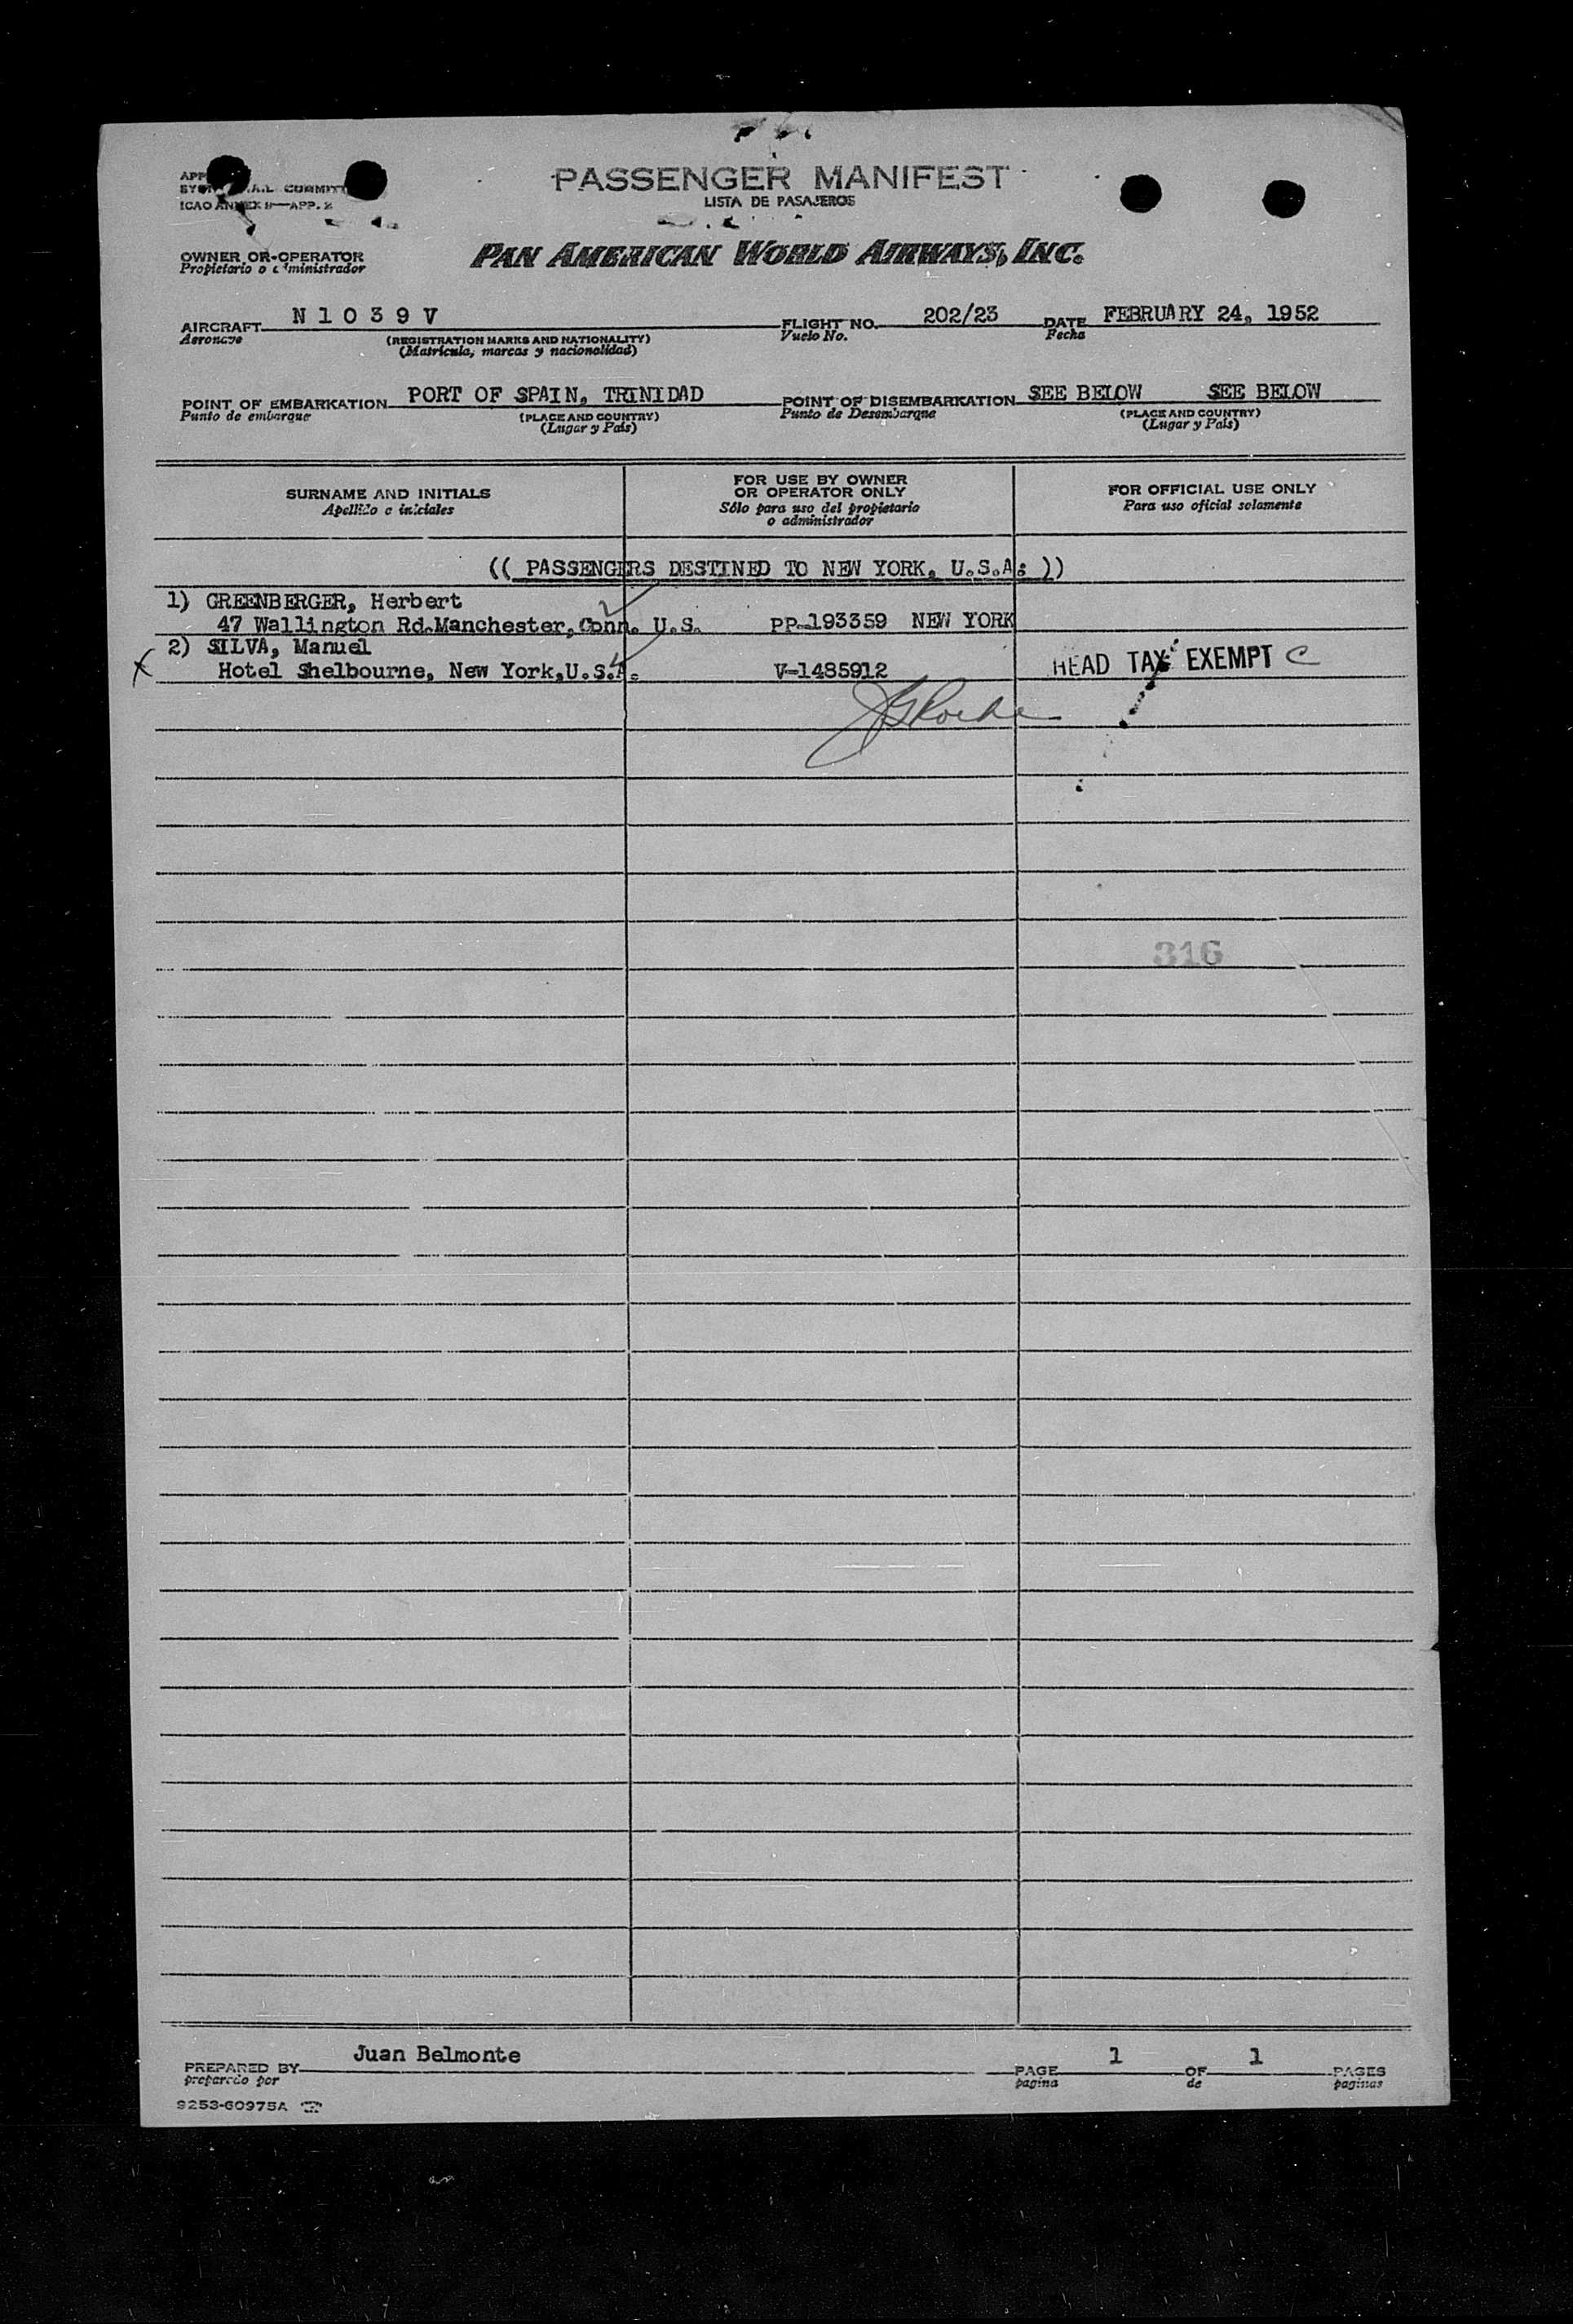 PASSENGER MANIFEST
LISTA DE PASAJEROS
ICAO ANNEX 9—APP. 2
OWNER OR OPERATOR
Propietario o administrador
PAN AMERICAN WORLD AIRWAYS, INC.
AIRCRAFT N 1 0 3 9 V FLIGHT NO. 202/23 DATE FEBRUARY 24, 1952
Aeronave (REGISTRATION MARKS AND NATIONALITY) Vuelo No. Fecha
(Matrícula, marcas y nacionalidad)
POINT OF EMBARKATION PORT OF SPAIN, TRINIDAD POINT OF DISEMBARKATION SEE BELOW SEE BELOW
Punto de embarque (PLACE AND COUNTRY) Punto de Desembarque (PLACE AND COUNTRY)
(Lugar y País) (Lugar y País)
SURNAME AND INITIALS
Apellido e iniciales
FOR USE BY OWNER
OR OPERATOR ONLY
Sólo para uso del propietario
o administrador
FOR OFFICIAL USE ONLY
Para uso oficial solamente
(( PASSENGERS DESTINED TO NEW YORK, U.S.A. ))
1) GREENBERGER, Herbert
47 Wallington Rd.Manchester,Conn. U.S. PP-193359 NEW YORK
2) SILVA, Manuel
X Hotel Shelbourne, New York,U.S.A. V-1485912 HEAD TAX EXEMPT C
316
PREPARED BY Juan Belmonte PAGE 1 OF 1 PAGES
preparado por pagina de paginas
9253-60975A